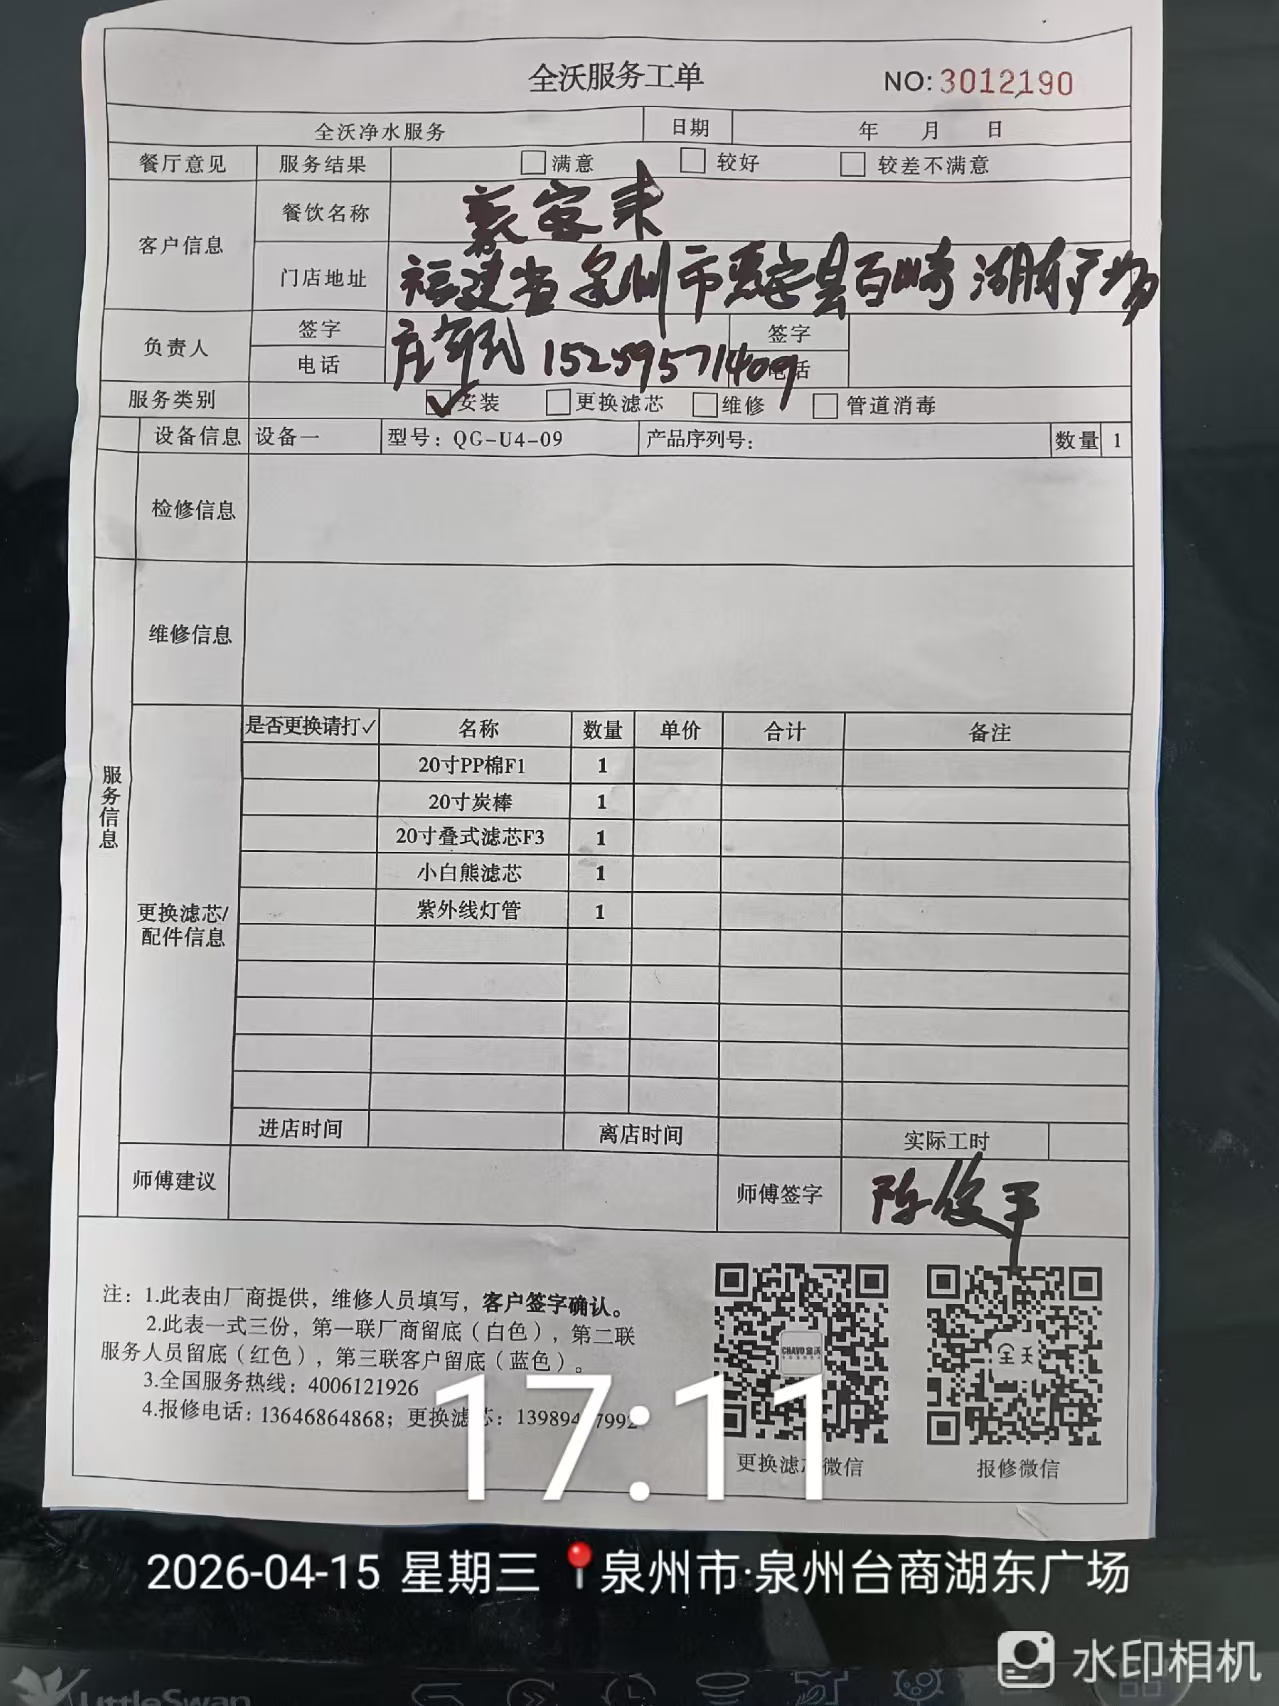 全沃服务工单 NO: 3012190
全沃净水服务 日期 年 月 日
餐厅意见 服务结果 满意 较好 较差不满意
客户信息 餐饮名称 客来
门店地址 福建省泉州市惠安县百崎湖东广场
负责人 签字 庄 签字
电话 15259571409 电话
服务类别 ✓ 安装 更换滤芯 维修 管道消毒
设备信息 设备一 型号：QG-U4-09 产品序列号： 数量 1
检修信息
维修信息
服务信息
更换滤芯/
配件信息
是否更换请打✓ 名称 数量 单价 合计 备注
20寸PP棉F1 1
20寸炭棒 1
20寸叠式滤芯F3 1
小白熊滤芯 1
紫外线灯管 1
进店时间 离店时间 实际工时
师傅建议 师傅签字 陈俊平
注：1.此表由厂商提供，维修人员填写，客户签字确认。
2.此表一式三份，第一联厂商留底（白色），第二联
服务人员留底（红色），第三联客户留底（蓝色）。
3.全国服务热线：4006121926
4.报修电话：13646864868；更换滤芯：
CHAVO全沃
全沃
更换滤芯微信 报修微信
17:11
2026-04-15 星期三 泉州市·泉州台商湖东广场
水印相机
LittleSwan